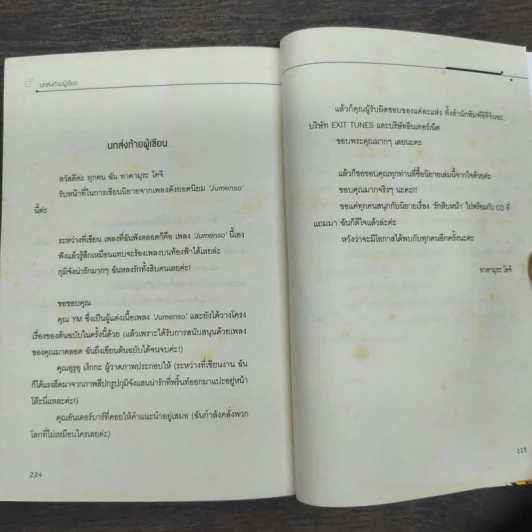 บทส่งท้ายผู้เขียน
บทส่งท้ายผู้เขียน
สวัสดีค่ะ ทุกคน ฉัน ทาคามุระ โคจิ
รับหน้าที่ในการเขียนนิยายจากเพลงดังยอดนิยม 'Jumenso'
นี้ค่ะ
ระหว่างที่เขียน เพลงที่ฉันฟังตลอดก็คือ เพลง 'Jumenso' นี้เอง
ฟังแล้วรู้สึกเหมือนแทบจะร้องเพลงบนท้องฟ้าได้เลยล่ะ
ภูมิจังน่ารักมากๆ ฉันหลงรักทั้งสิบคนเลยค่ะ!
ขอขอบคุณ
คุณ YM ซึ่งเป็นผู้แต่งเนื้อเพลง 'Jumenso' และยังได้วางโครง
เรื่องของต้นฉบับในครั้งนี้ด้วย (แล้วเพราะได้รับการสนับสนุนด้วยเพลง
ของคุณมาตลอด ฉันถึงเขียนต้นฉบับได้จนจบค่ะ!)
คุณยูซุ เง็กกะ ผู้วาดภาพประกอบให้ (ระหว่างที่เขียนงาน ฉัน
ก็ได้แรงฮึดมาจากภาพสีปกรูปภูมิจังแสนน่ารักที่พริ้นท์ออกมาแปะอยู่หน้า
โต๊ะนี่แหละค่ะ!)
คุณอันเดอร์บาร์ที่คอยให้คำแนะนำอยู่เสมอ (ฉันกำลังคลั่งพวก
โลกที่ไม่เหมือนใครเลยค่ะ)
224
แล้วก็คุณผู้รับผิดชอบของแต่ละแห่ง ทั้งสำนักพิมพ์อิจิจินฉะ,
บริษัท EXIT TUNES และบริษัทอินเทอร์เน็ต
ขอบพระคุณมากๆ เลยนะคะ
แล้วก็ขอขอบคุณทุกท่านที่ซื้อนิยายเล่มนี้จากใจด้วยค่ะ
ขอบคุณมากจริงๆ นะคะ!!
ขอแค่ทุกคนสนุกกับนิยายเรื่อง 'รักสิบหน้า' ไปพร้อมกับ CD ที่
แถมมา ฉันก็ดีใจแล้วล่ะค่ะ
หวังว่าจะมีโอกาสได้พบกับทุกคนอีกครั้งนะคะ
ทาคามุระ โคจิ
225